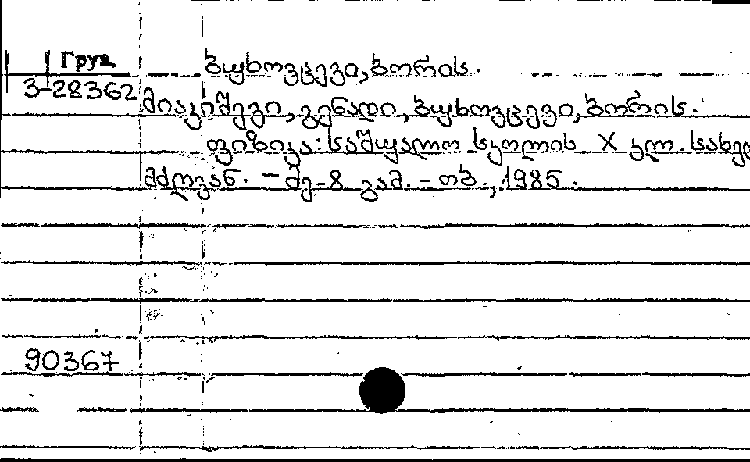 Груз. ბუხოვცევი, ბორის.
3-28362 მიაკიშევი, გენადი, ბუხოვცევი, ბორის.
ფიზიკა: საშუალო სკოლის X კლ. სახელ
მძღვან. – მე-8 გამ. – თბ., 1985.
90367